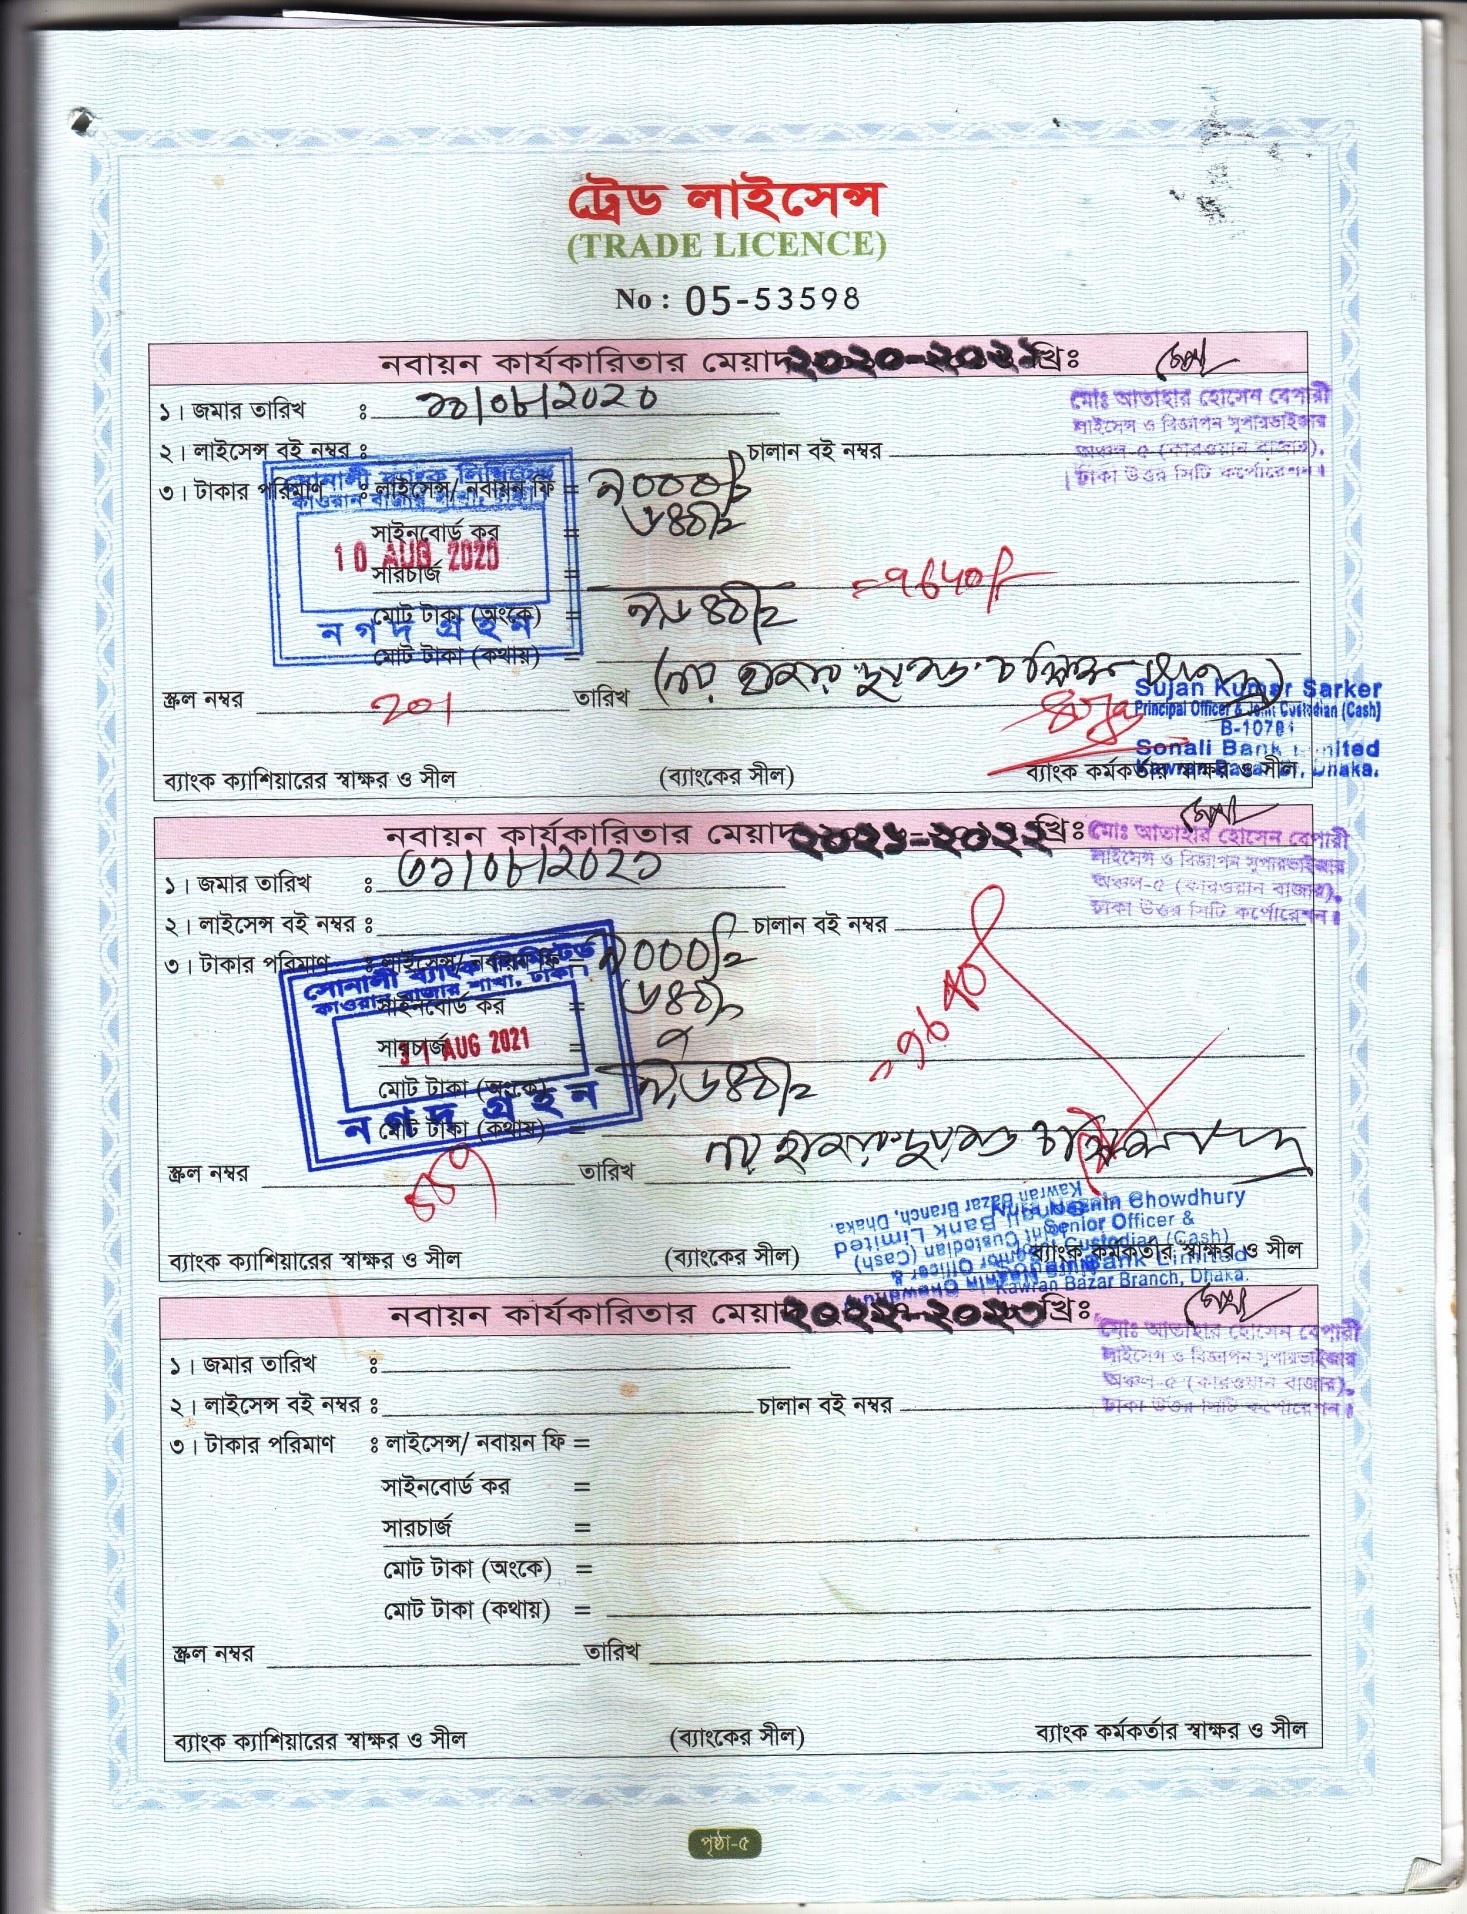 ট্রেড লাইসেন্স
(TRADE LICENCE)
No : 05-53598
নবায়ন কার্যকারিতার মেয়াদ ২০২০-২০২১ খ্রিঃ
মোঃ আতাহার হোসেন বেপারী
লাইসেন্স ও বিজ্ঞাপন সুপারভাইজার
অঞ্চল-৫ (কারওয়ান বাজার),
ঢাকা উত্তর সিটি কর্পোরেশন।
১। জমার তারিখ : /০৮/২০২০
২। লাইসেন্স বই নম্বর : চালান বই নম্বর
৩। টাকার পরিমাণ : লাইসেন্স/ নবায়ন ফি =
সোনালী ব্যাংক লিমিটেড
কাওরান বাজার শাখা, ঢাকা।
সাইনবোর্ড কর =
10 AUG 2020
সারচার্জ =
মোট টাকা (অংকে) =
নগদ গ্রহন
মোট টাকা (কথায়) =
স্ক্রল নম্বর 201 তারিখ
Sujan Kumar Sarker
Principal Officer & Joint Custodian (Cash)
Sonali Bank Limited
Kawran Bazar Br, Dhaka.
ব্যাংক ক্যাশিয়ারের স্বাক্ষর ও সীল (ব্যাংকের সীল) ব্যাংক কর্মকর্তার স্বাক্ষর ও সীল
নবায়ন কার্যকারিতার মেয়াদ ২০২১-২০২২ খ্রিঃ
মোঃ আতাহার হোসেন বেপারী
লাইসেন্স ও বিজ্ঞাপন সুপারভাইজার
অঞ্চল-৫ (কারওয়ান বাজার),
ঢাকা উত্তর সিটি কর্পোরেশন।
১। জমার তারিখ : ৩১/০৮/২০২১
২। লাইসেন্স বই নম্বর : চালান বই নম্বর
৩। টাকার পরিমাণ : লাইসেন্স/ নবায়ন ফি =
সোনালী ব্যাংক লিমিটেড
কাওরান বাজার শাখা, ঢাকা।
সাইনবোর্ড কর =
সারচার্জ =
31 AUG 2021
মোট টাকা (অংকে) =
নগদ গ্রহন
মোট টাকা (কথায়) =
স্ক্রল নম্বর তারিখ
Chowdhury
Senior Officer &
Joint Custodian (Cash)
Sonali Bank Limited
Kawran Bazar Branch, Dhaka.
ব্যাংক ক্যাশিয়ারের স্বাক্ষর ও সীল (ব্যাংকের সীল) ব্যাংক কর্মকর্তার স্বাক্ষর ও সীল
নবায়ন কার্যকারিতার মেয়াদ ২০২২-২০২৩ খ্রিঃ
মোঃ আতাহার হোসেন বেপারী
লাইসেন্স ও বিজ্ঞাপন সুপারভাইজার
অঞ্চল-৫ (কারওয়ান বাজার),
ঢাকা উত্তর সিটি কর্পোরেশন।
১। জমার তারিখ :
২। লাইসেন্স বই নম্বর : চালান বই নম্বর
৩। টাকার পরিমাণ : লাইসেন্স/ নবায়ন ফি =
সাইনবোর্ড কর =
সারচার্জ =
মোট টাকা (অংকে) =
মোট টাকা (কথায়) =
স্ক্রল নম্বর তারিখ
ব্যাংক ক্যাশিয়ারের স্বাক্ষর ও সীল (ব্যাংকের সীল) ব্যাংক কর্মকর্তার স্বাক্ষর ও সীল
পৃষ্ঠা-৫